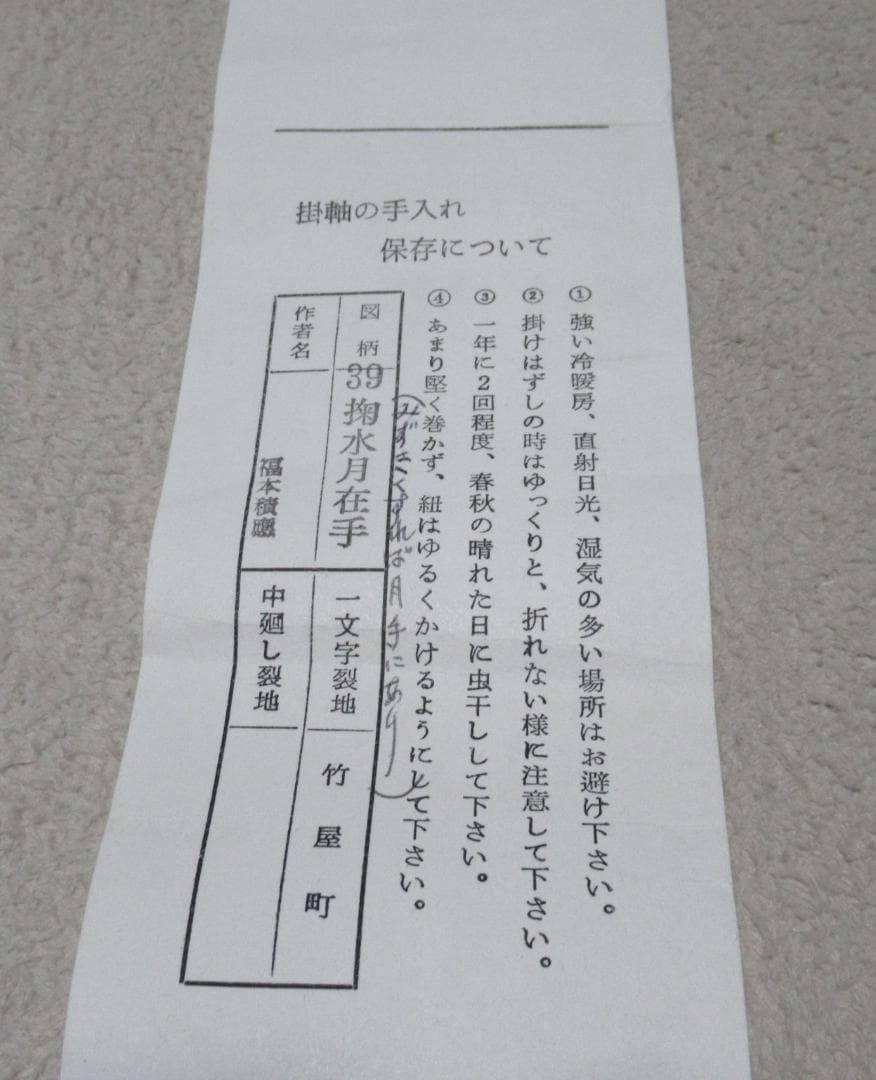 掛軸の手入れ
保存について
① 強い冷暖房、直射日光、湿気の多い場所はお避け下さい。
② 掛けはずしの時はゆっくりと、折れない様に注意して下さい。
③ 一年に2回程度、春秋の晴れた日に虫干しして下さい。
④ あまり堅く巻かず、紐はゆるくかけるようにして下さい。
(みずきくすれば月手にあり)
図柄
39
掬水月在手
一文字裂地
竹屋町
作者名
福本積應
中廻し裂地